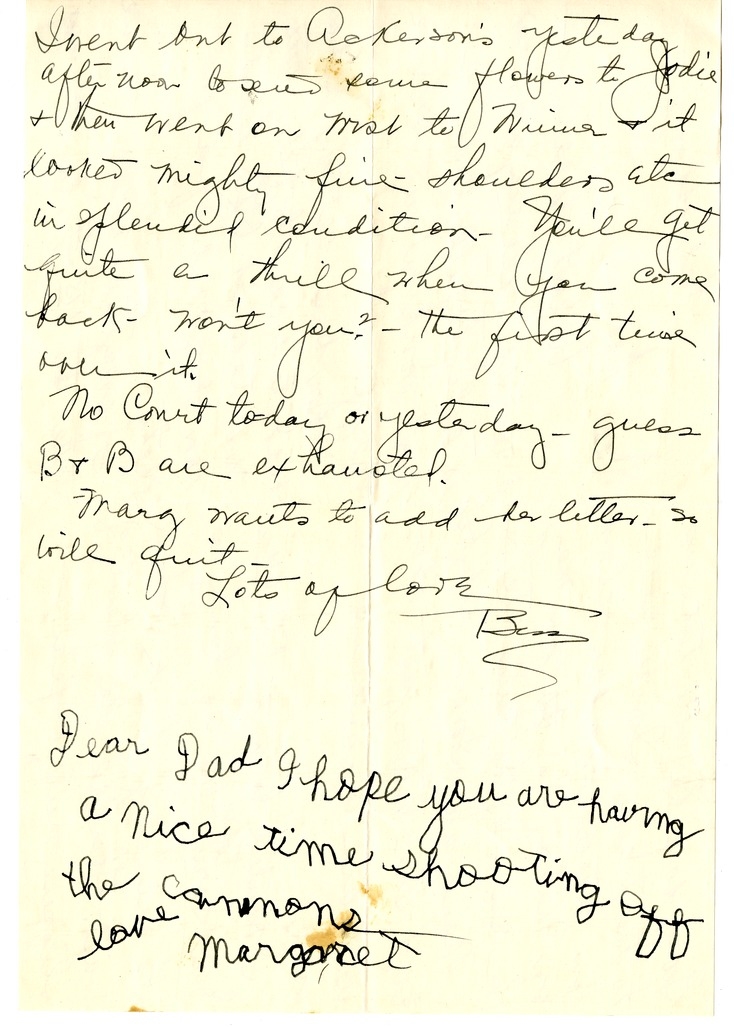 I went out to Ackerson's yesterday
afternoon to send some flowers to Jodie
& then went on west to Winner & it
looked mighty fine - shoulders etc
in splendid condition - You'll get
quite a thrill when you come
back - won't you? - the first time
over it.
No Court today or yesterday - guess
B & B are exhausted.
Marg wants to add her letter - so
will quit -
Lots of love
Bess
Dear Dad I hope you are having
a nice time shooting off
the cannons
love
Margaret